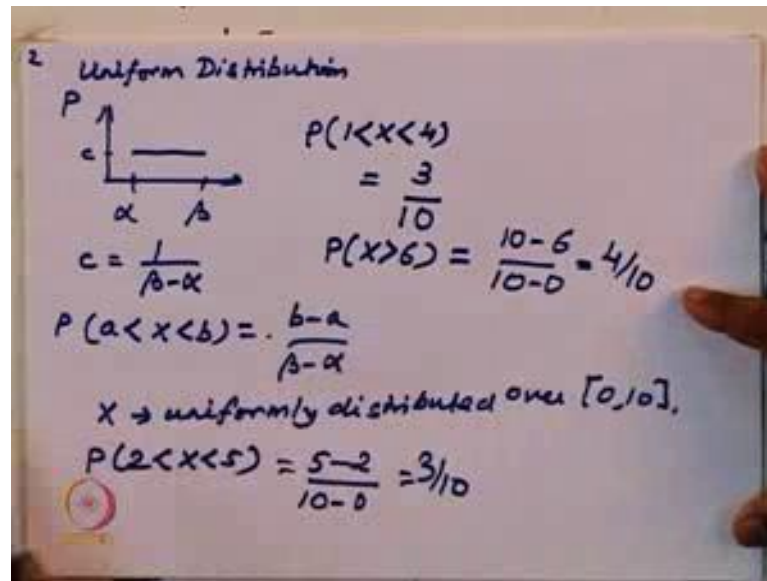 2 Uniform Distribution
P
c
α β
c = 1/(β-α)
P(1<x<4)
= 3/10
P(x>6) = (10-6)/(10-0) = 4/10
P(a<x<b) = . (b-a)/(β-α)
X → uniformly distributed over [0,10].
P(2<x<5) = (5-2)/(10-0) = 3/10